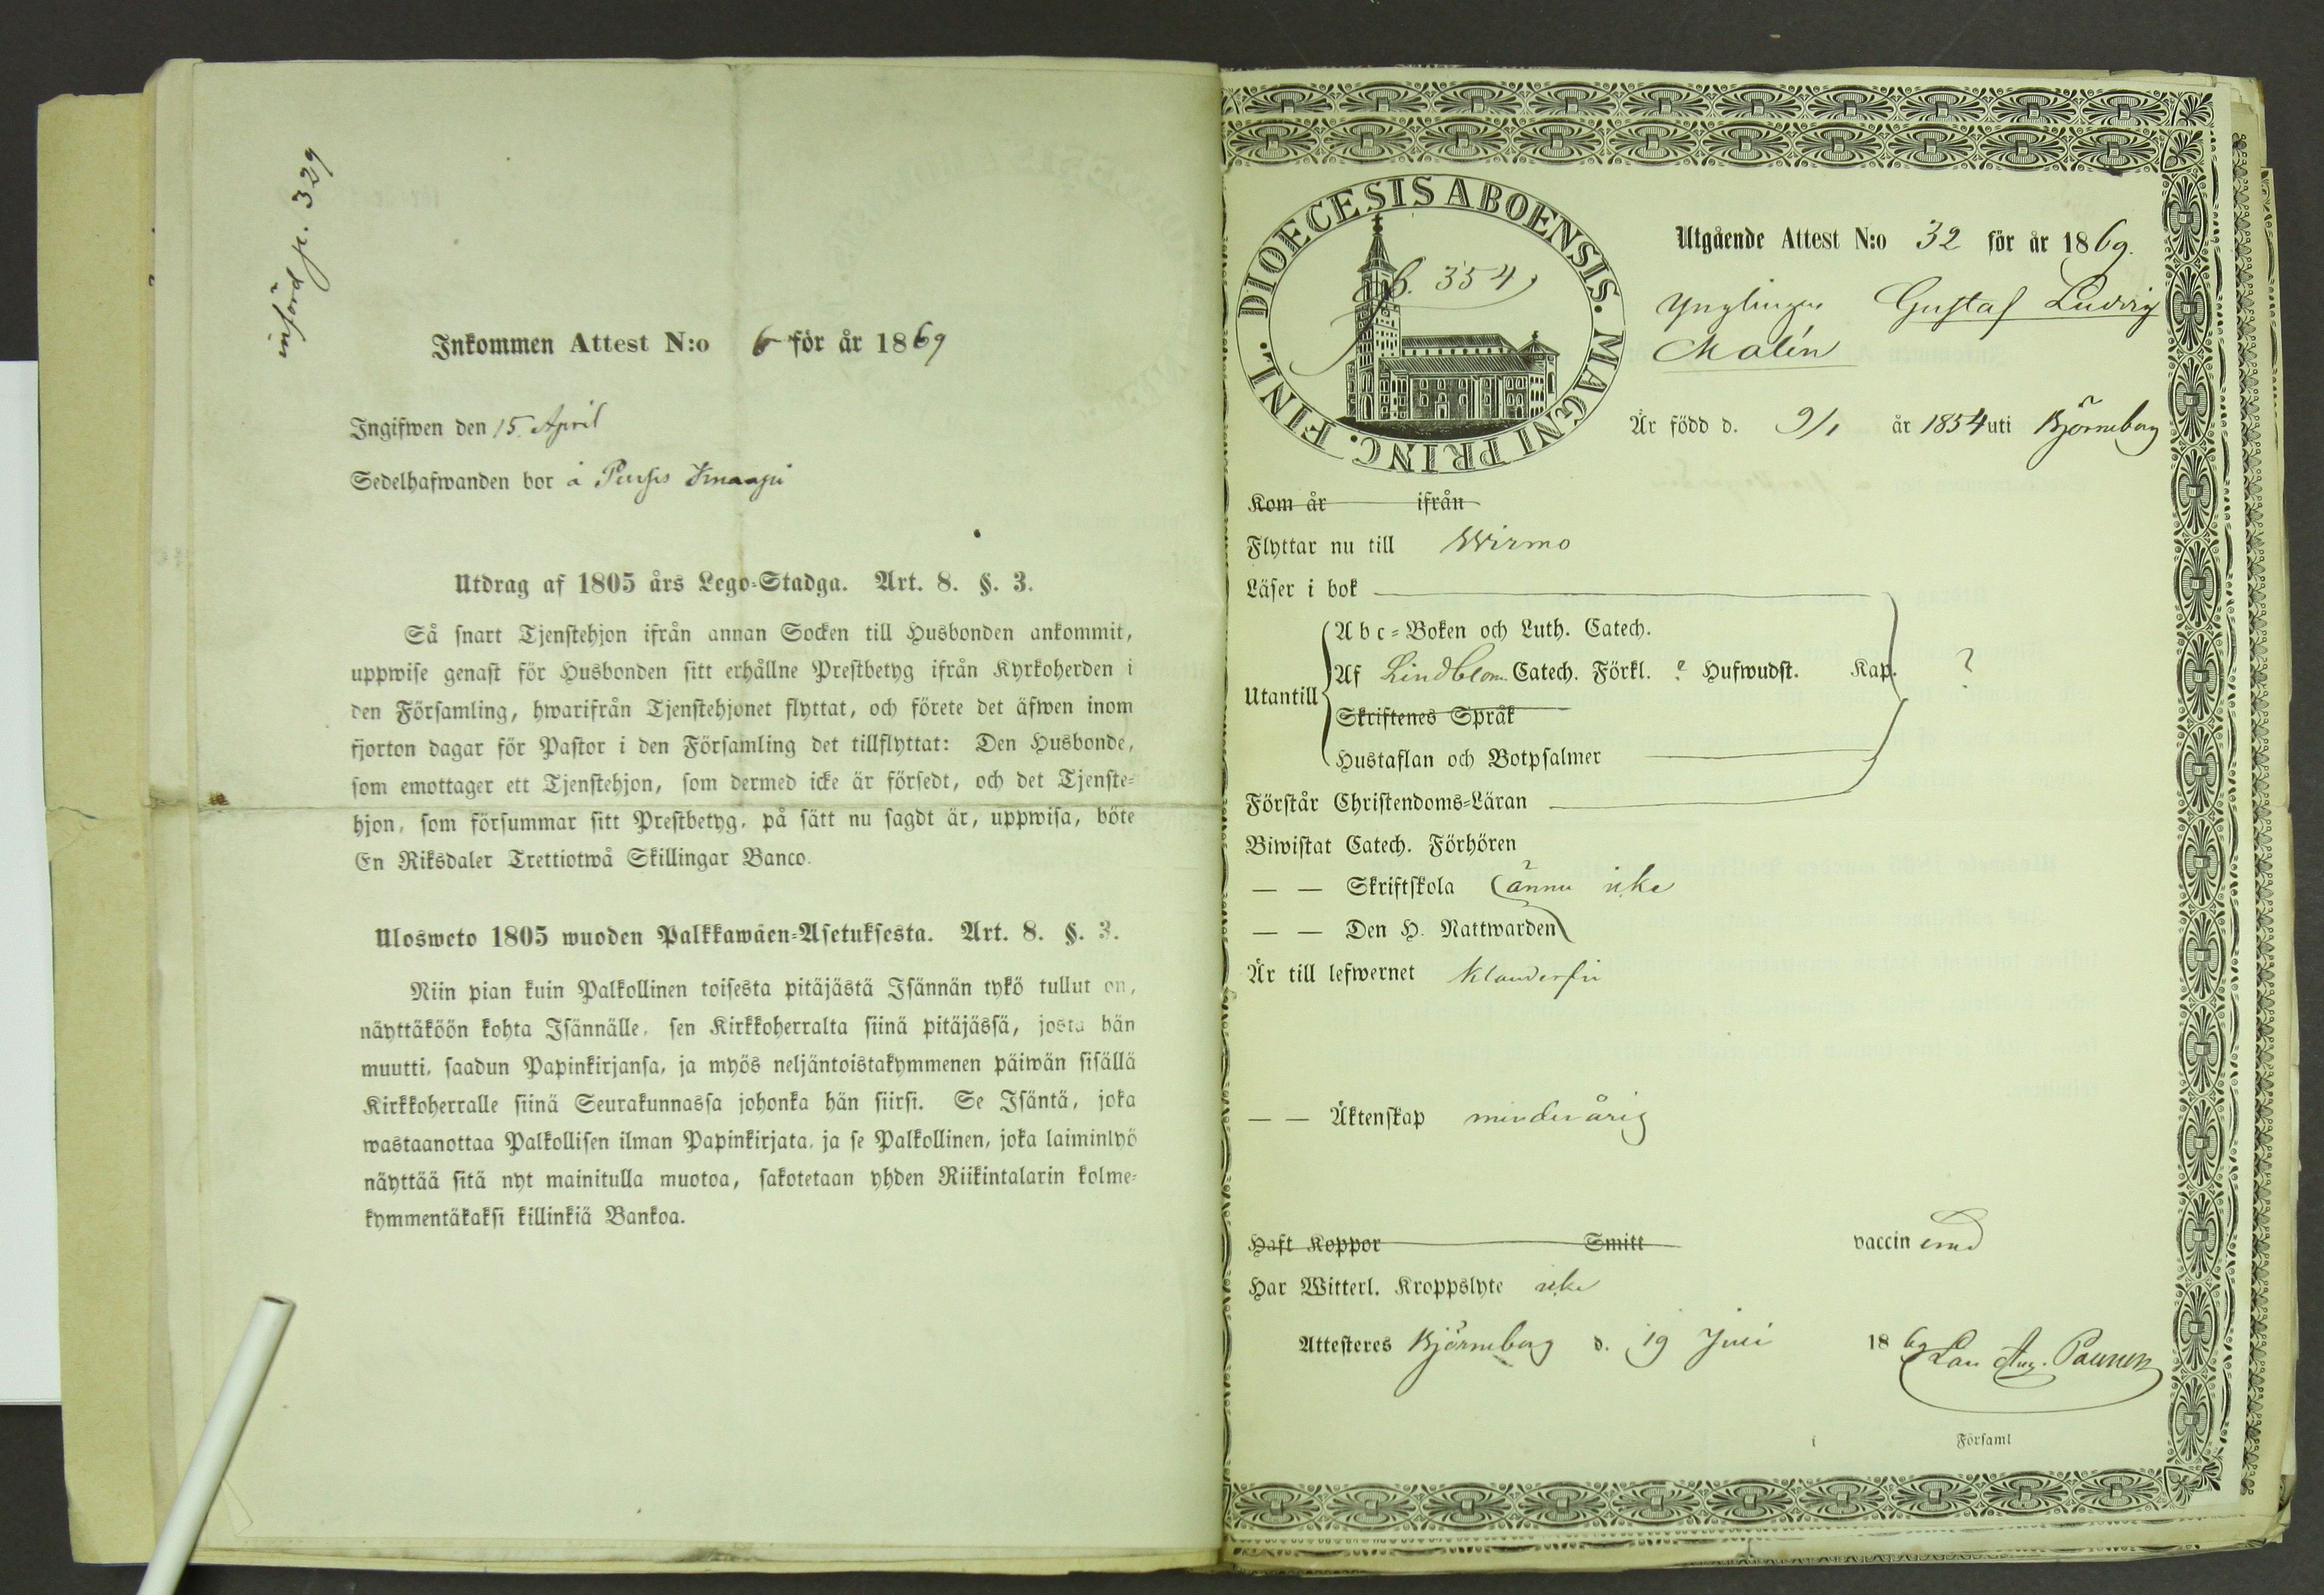 införd p. 329
Inkommen Attest N:o 6 för år 1869
Ingifwen den 15. April
Sedelhafwanden bor å
Utdrag af 1805 års Lego-Stadga. Art. 8. §. 3.
Så snart Tjenstehjon ifrån annan Socken till Husbonden ankommit,
uppwise genast för Husbonden sitt erhållne Prestbetyg ifrån Kyrkoherden i
den Församling, hwarifrån Tjenstehjonet flyttat, och förete det äfwen inom
fjorton dagar för Pastor i den Församling det tillflyttat: Den Husbonde,
som emottager ett Tjenstehjon, som dermed icke är försedt, och det Tjenste-
hjon, som försummar sitt Prestbetyg, på sätt nu sagdt är, uppwisa, böte
En Riksdaler Trettiotwå Skillingar Banco.
Ulosweto 1805 wuoden Palkkawäen-Asetuksesta. Art. 8. §. 3.
Niin pian kuin Palkollinen toisesta pitäjästä Isännän tykö tullut on,
näyttäköön kohta Isännälle, sen Kirkkoherralta siinä pitäjässä, josta hän
muutti, saadun Papinkirjansa, ja myös neljäntoistakymmenen päiwän sisällä
Kirkkoherralle siinä Seurakunnassa johonka hän siirsi. Se Isäntä, joka
wastaanottaa Palkollisen ilman Papinkirjata, ja se Palkollinen, joka laiminlyö
näyttää sitä nyt mainitulla muotoa, sakotetaan yhden Riikintalarin kolme-
kymmentäkaksi killinkiä Bankoa.
DIOECESIS ABOENSIS. MAGNI PRINC. FINL.
p. 354
Utgående Attest N:o 32 för år 1869.
Ynglingen Gustaf Ludvig
Malén
Är född d. 9/1 år 1854 uti Björneborg
Kom år ifrån
Flyttar nu till Wirmo
Läser i bok
Abc-Boken och Luth. Catech.
Utantill Af Lindblom. Catech. Förkl. ? Hufwudst. Kap. ?
Skriftenes Språk
Hustaflan och Botpsalmer
Förstår Christendoms-Läran
Biwistat Catech. Förhören
— — Skriftskola ännu icke
— — Den H. Nattwarden
Är till lefwernet klanderfri
— — Äktenskap minderårig
Haft Koppor Smitt vaccinerad
Har Witterl. Kroppslyte icke
Attesteres Björneborg d. 19 Juli 1869
i Församl